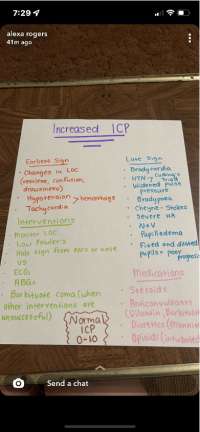 7:29
alexa rogers
41m ago
Increased ICP
Earliest Sign
• Changes in LOC
(restless, confusion,
drowsiness)
• Hypotension → hemorrhage
• Tachycardia
Interventions
• Monitor LOC
• Low Fowlers
• Halo sign from ears or nose
• VS
• ECG
• ABGs
• Barbiturate coma (when
other interventions are
unsuccessful)
Normal
ICP
0-10
Late Sign
• Bradycardia
• HTN → Cushing's Triad
• Widened pulse
pressure
• Bradypnea
• Cheyne-Stokes
• Severe HA
• N+V
• Papilledema
• Fixed and dilated
pupils = poor
Medications
• Steroids
• Anticonvulsants
(Dilantin, Barbiturates
• Diuretics (Mannitol
• Opioids (intubated
Send a chat